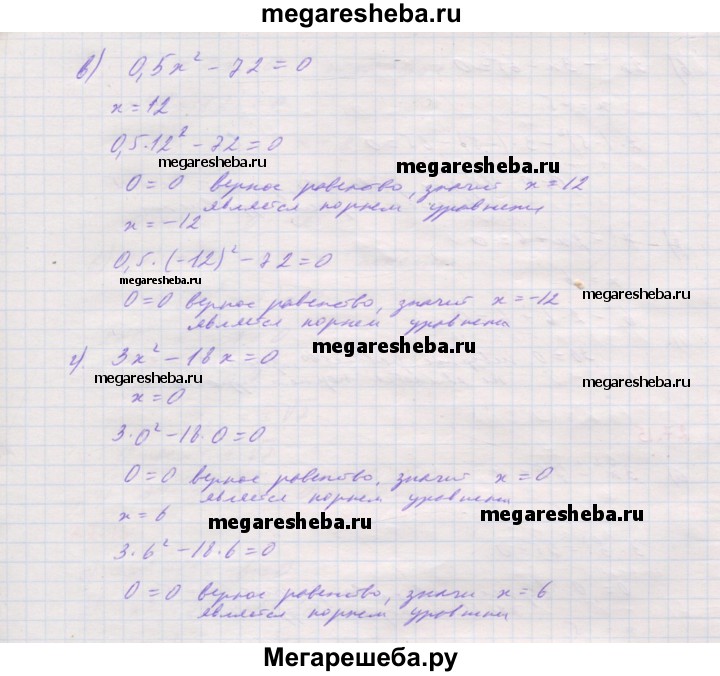 megaresheba.ru
в) 0,5x² - 72 = 0
x = 12
0,5·12² - 72 = 0
megaresheba.ru
megaresheba.ru
0 = 0 верное равенство, значит x = 12
является корнем уравнения
x = -12
0,5·(-12)² - 72 = 0
megaresheba.ru
megaresheba.ru
0 = 0 верное равенство, значит x = -12
является корнем уравнения
megaresheba.ru
г) 3x² - 18x = 0
megaresheba.ru
megaresheba.ru
x = 0
3·0² - 18·0 = 0
0 = 0 верное равенство, значит x = 0
является корнем уравнения
x = 6
megaresheba.ru
megaresheba.ru
3·6² - 18·6 = 0
0 = 0 верное равенство, значи x = 6
является корнем уравнения
megaresheba.ru
megaresheba.ru
Мегарешеба.ру